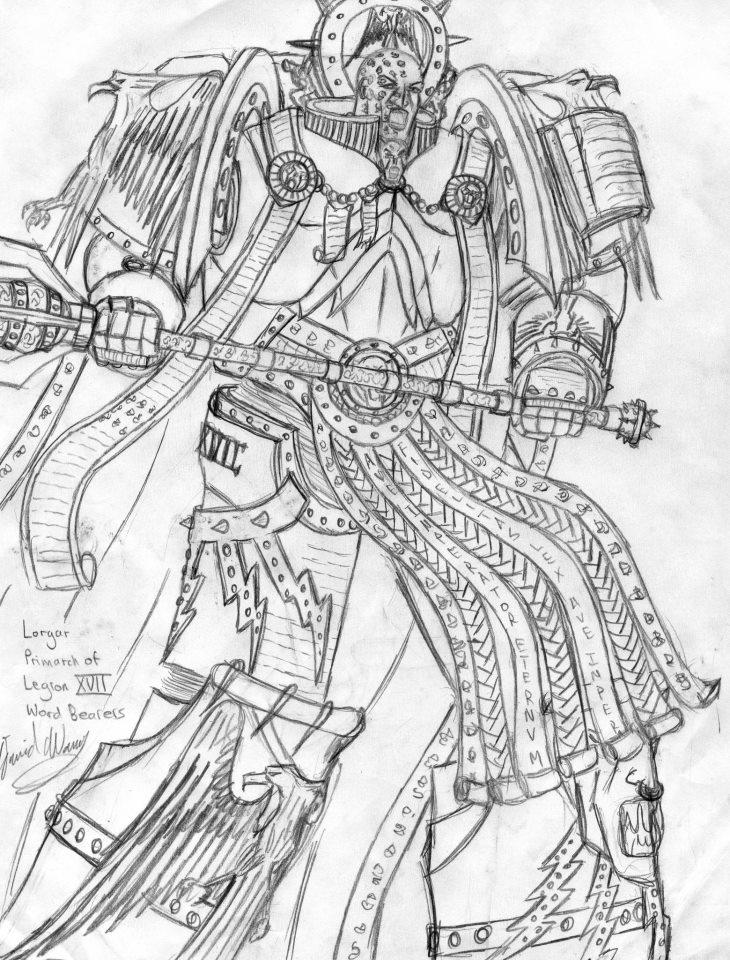 XVII
AVE IMPERATOR ETERNVM
FIDELITAS LEX AVE IMPER
Lorgar
Primarch of
Legion XVII
Word Bearers
David